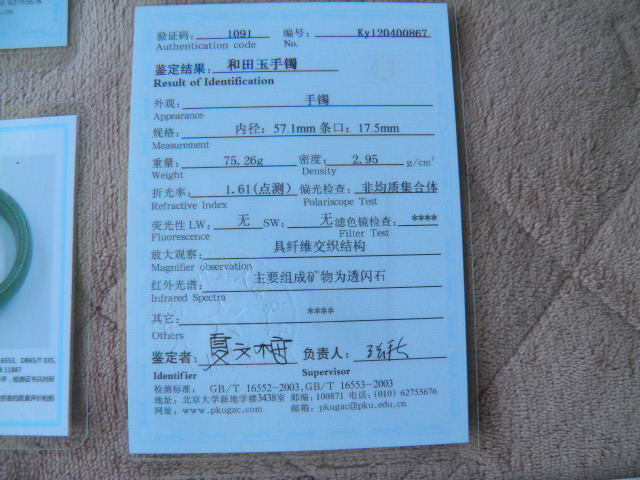 62755676
pku.edu.cn
验证码: 1091 编号: Ky120400867
Authentication code No.
鉴定结果: 和田玉手镯
Result of Identification
外观: 手镯
Appearance
规格: 内径: 57.1mm 条口: 17.5mm
Measurement
重量: 75.26g 密度: 2.95 g/cm³
Weight Density
折光率: 1.61(点测) 偏光检查: 非均质集合体
Refractive Index Polariscope Test
荧光性 LW: 无 SW: 无 滤色镜检查: ****
Fluorescence Filter Test
放大观察: 具纤维交织结构
Magnifier observation
红外光谱: 主要组成矿物为透闪石
Infrared Spectra
其它: ****
Others
鉴定者: 夏文梅 负责人:
Identifier Supervisor
检测标准: GB/T 16552-2003,GB/T 16553-2003
地址: 北京大学新地学楼3438室 邮编: 100871 电话: (010) 62755676
网址: www.pkugac.com 邮箱: pkugac@pku.edu.cn
16553、DB65/T 035.
11887
字,检测证书只对所